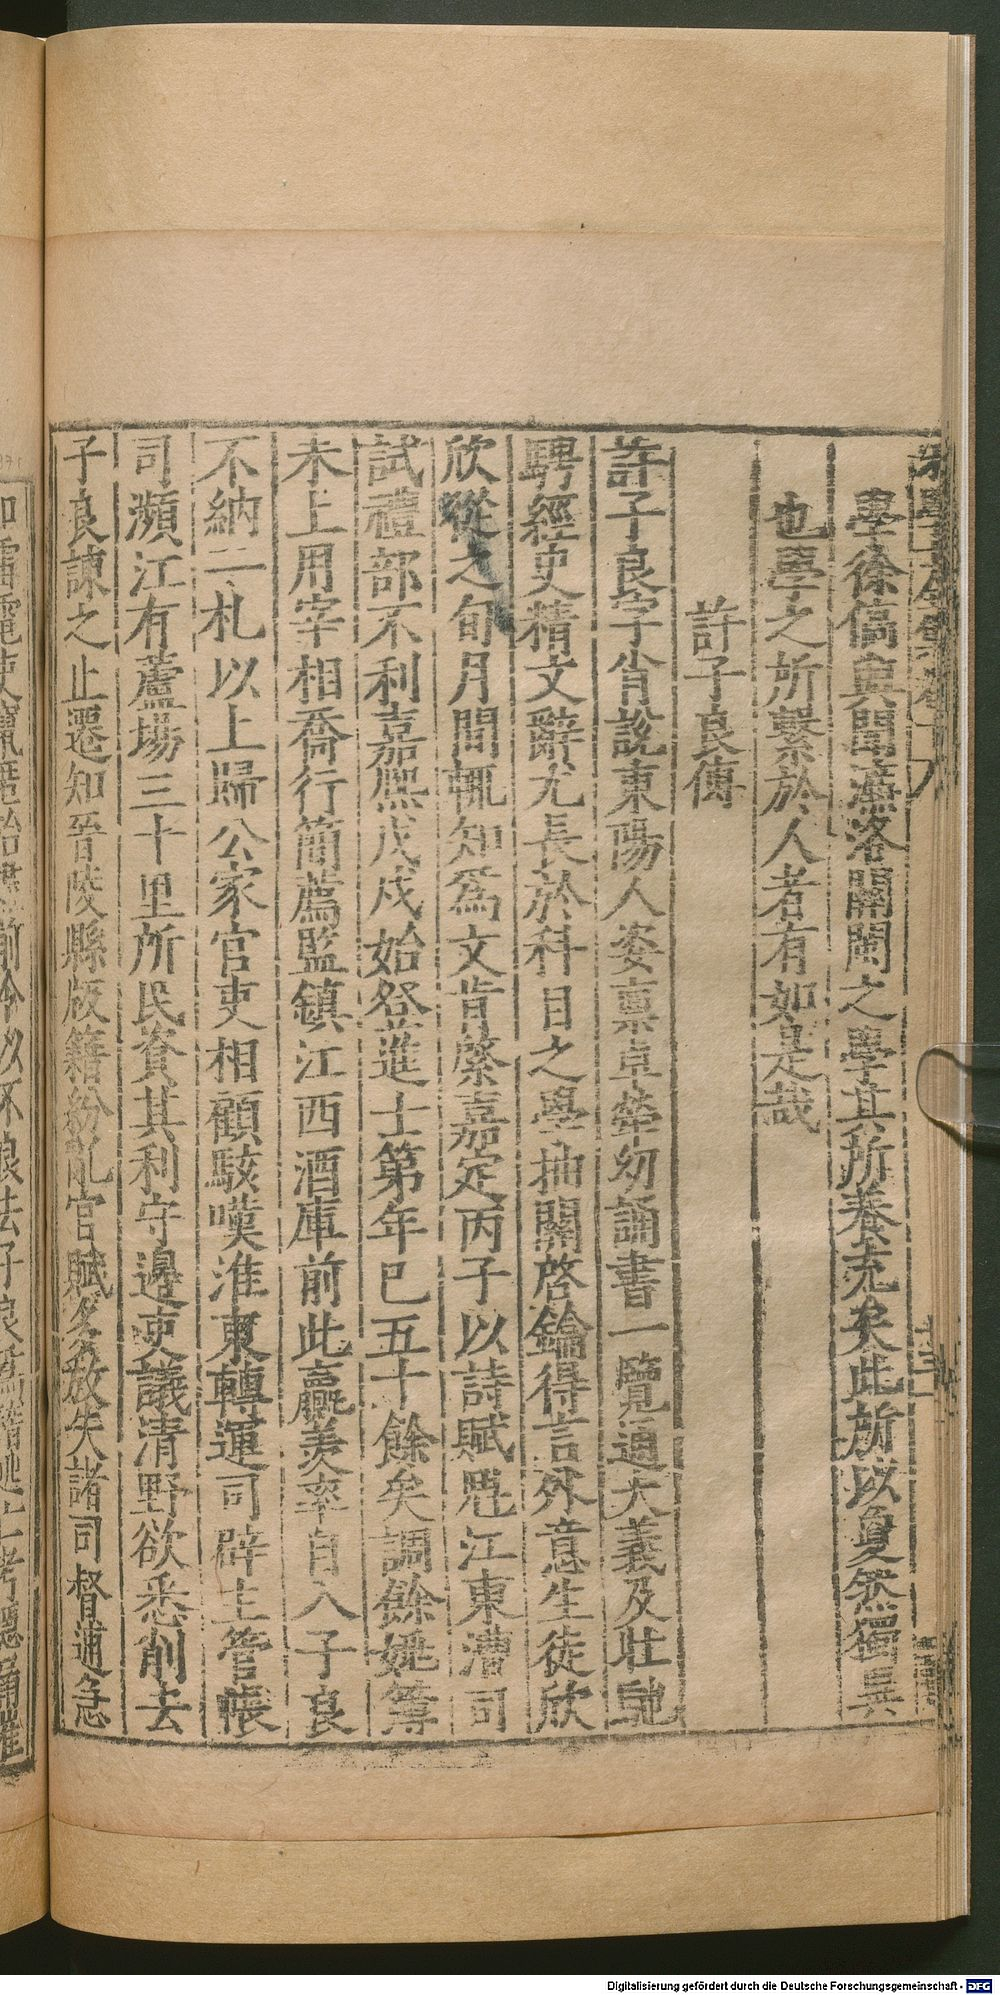 學徐僑與聞濂洛關閩之學其所養充矣此所以夐然獨異
也學之所繫於人者有如是哉
許子良傳
許子良字肖說東陽人姿禀卓犖幼誦書一覽通大義及壯馳
騁經史精文辭尤長於科目之學抽關啓鑰得言外意生徒欣
欣從之旬月間輒知為文肯綮嘉定丙子以詩賦魁江東漕司
試禮部不利嘉熙戊戌始登進士第年已五十餘矣調餘姚簿
未上用宰相喬行簡薦監鎮江西酒庫前此贏羡率自入子良
不納二札以上歸公家官吏相顧駭嘆淮東轉運司辟主管帳
司瀕江有蘆場三十里所民資其利守邊吏議清野欲悉削去
子良諫之止遷知晉陵縣版籍紛亂官賦多放失諸司督逋急
Digitalisierung gefördert durch die Deutsche Forschungsgemeinschaft - DFG